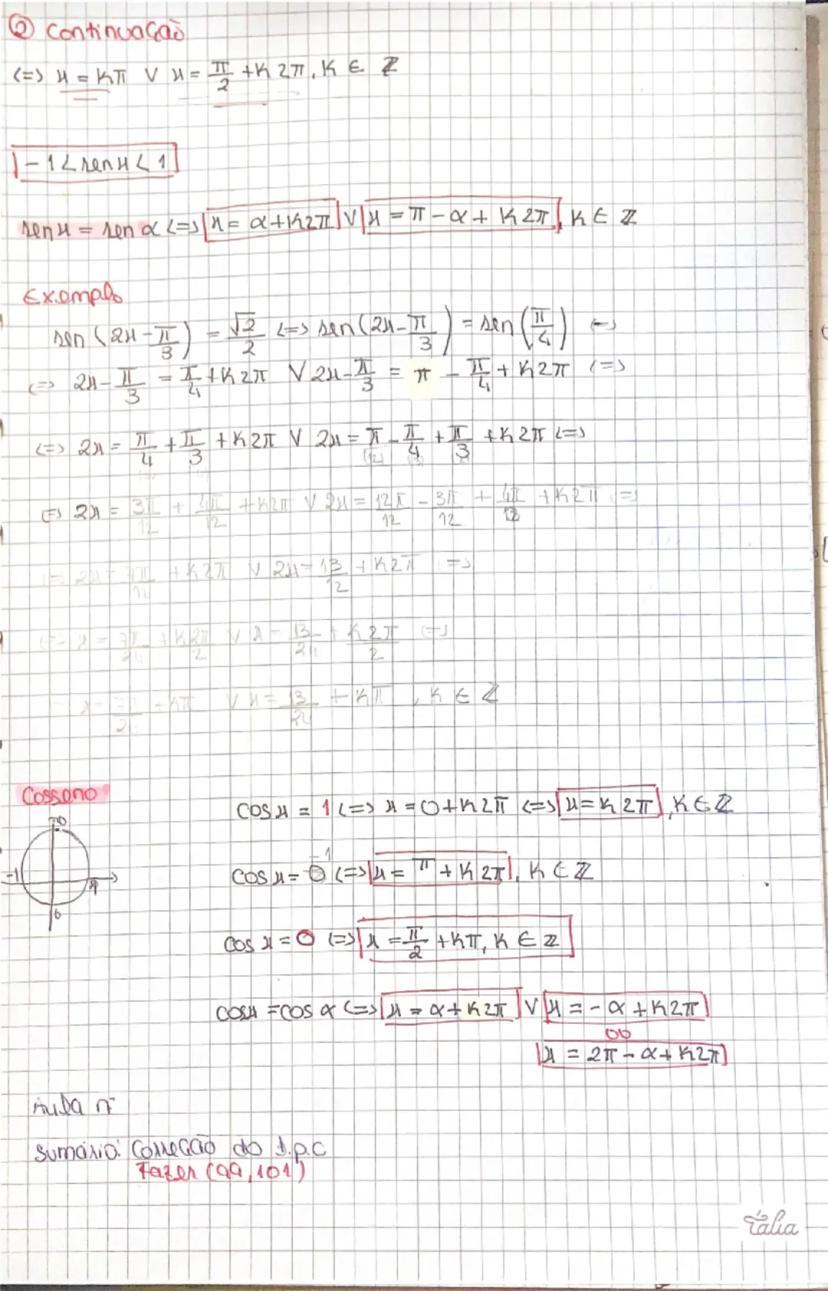 ② Continuação
(=) x = kπ ∨ x = π/2 + k2π, k ∈ ℤ
-1 < sen x < 1
sen x = sen α (=) x = α + k2π ∨ x = π - α + k2π, k ∈ ℤ
Exemplo
sen(2x - π/3) = √2/2 (=) sen(2x - π/3) = sen(π/4) (=)
(=) 2x - π/3 = π/4 + k2π ∨ 2x - π/3 = π - π/4 + k2π (=)
(=) 2x = π/4 + π/3 + k2π ∨ 2x = π - π/4 + π/3 + k2π (=)
(=) 2x = 3π/12 + 4π/12 + k2π ∨ 2x = 12π/12 - 3π/12 + 4π/12 + k2π (=)
(=) 2x = 7π/12 + k2π ∨ 2x = 13/12 + k2π (=)
(=) x = 7π/24 + k2π/2 ∨ x = 13/24 + k2π/2 (=)
x = 7π/24 + kπ ∨ x = 13/24 + kπ, k ∈ ℤ
Cosseno
cos x = 1 (=) x = 0 + k2π (=) x = k2π, k ∈ ℤ
cos x = -1 (=) x = π + k2π, k ∈ ℤ
-1
cos x = 0 (=) x = π/2 + kπ, k ∈ ℤ
cos x = cos α (=) x = α + k2π ∨ x = -α + k2π
ou
x = 2π - α + k2π
Aula nº
Sumário: Correção do t.p.c
Fazer (99, 101)
Tália